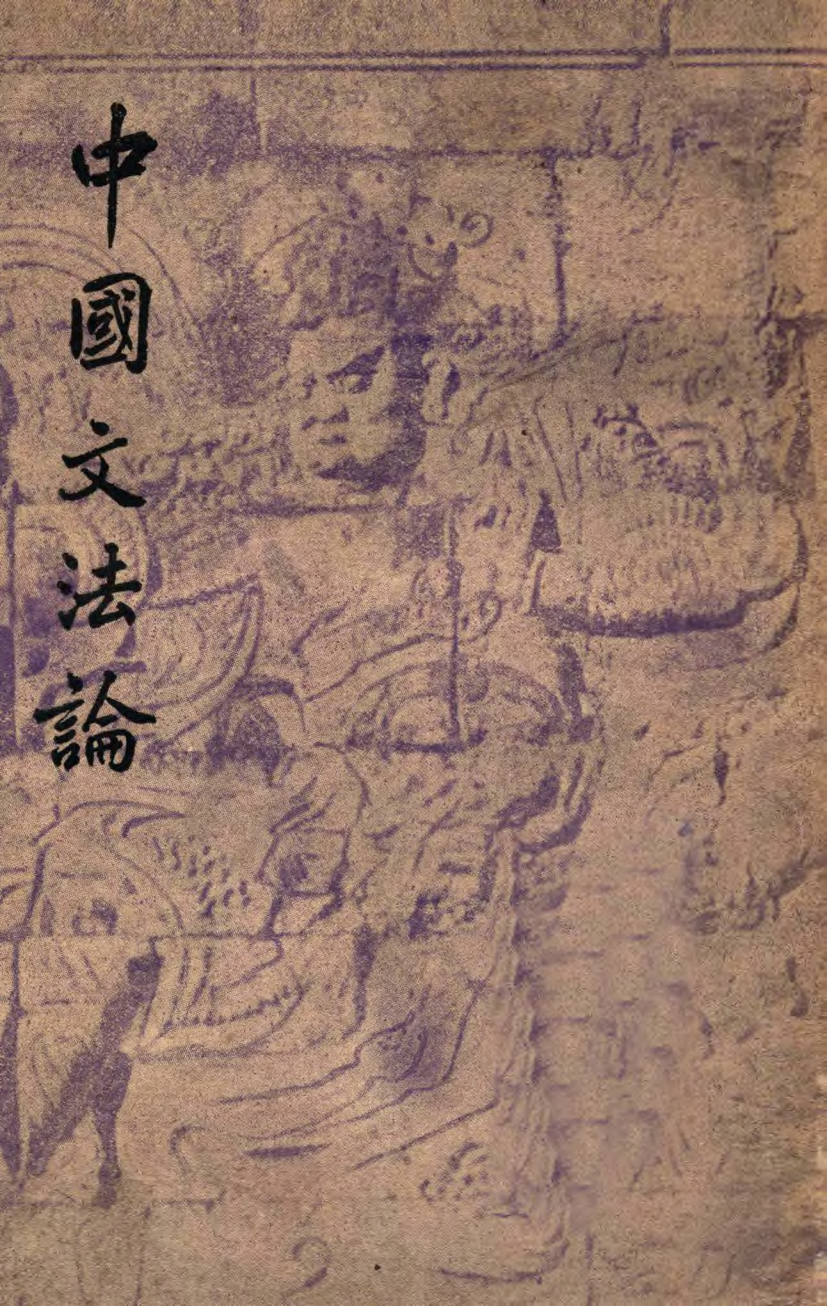 中國文法論